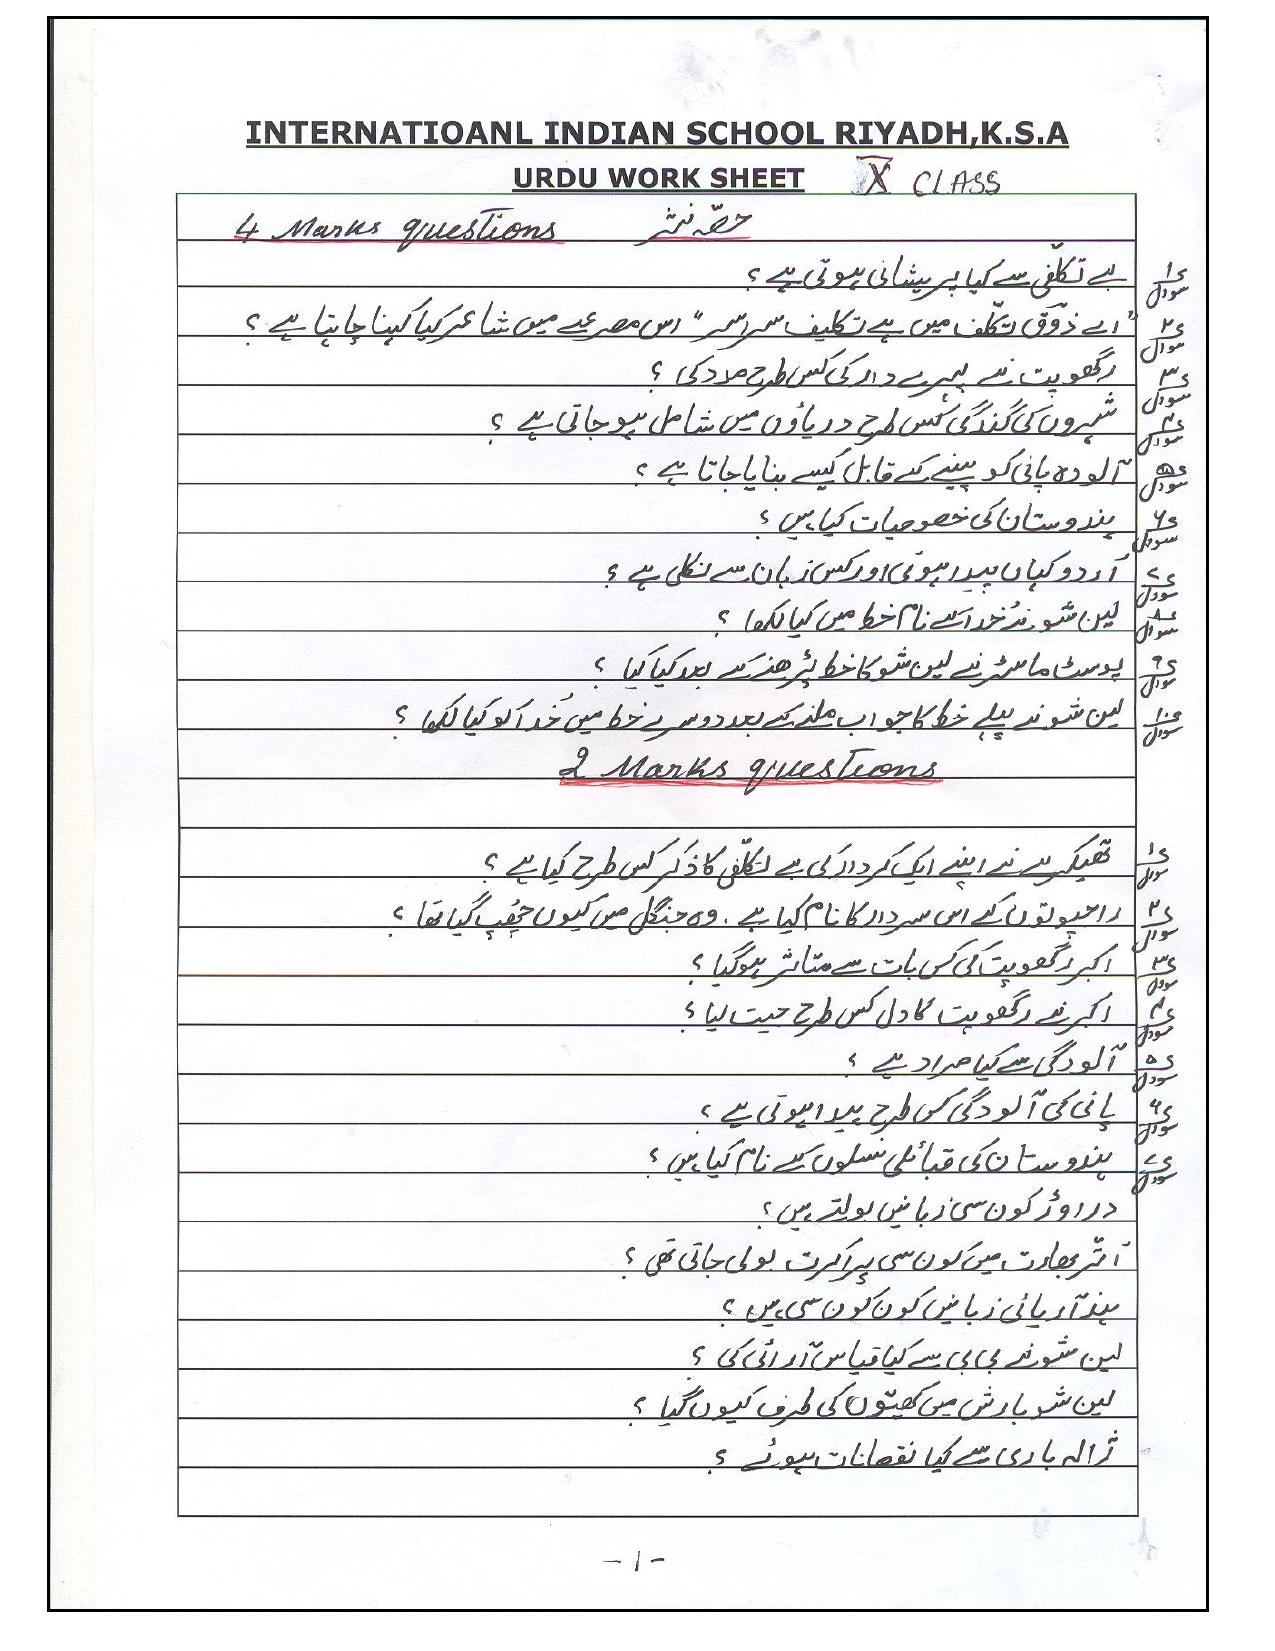 INTERNATIOANL INDIAN SCHOOL RIYADH,K.S.A
URDU WORK SHEET X CLASS
4 Marks questions حصّہ نثر
سوال ۱ بے تکلّفی سے کیا پریشانی ہوتی ہے؟
سوال ۲ "اے ذوقؔ تکلّف میں ہے تکلیف سراسر" اس مصرعے میں شاعر کیا کہنا چاہتا ہے؟
سوال ۳ رگھوپت نے پہرے دار کی کس طرح مدد کی؟
سوال ۴ شہروں کی گندگی کس طرح دریاؤں میں شامل ہو جاتی ہے؟
سوال ۵ آلودہ پانی کو پینے کے قابل کیسے بنایا جاتا ہے؟
سوال ۶ ہندوستان کی خصوصیات کیا ہیں؟
سوال ۷ اُردو کہاں پیدا ہوئی اور کس زبان سے نکلی ہے؟
سوال ۸ لین شو نے خُدا کے نام خط میں کیا لکھا؟
سوال ۹ پوسٹ ماسٹر نے لین شو کا خط پڑھنے کے بعد کیا کیا؟
سوال ۱۰ لین شو نے پہلے خط کا جواب ملنے کے بعد دوسرے خط میں خُدا کو کیا لکھا؟
2 Marks questions
سوال ۱ تھیکرے نے اپنے ایک کردار کی بے تکلّفی کا ذکر کس طرح کیا ہے؟
سوال ۲ راجپوتوں کے اس سردار کا نام کیا ہے۔ وہ جنگل میں کیوں چھُپ گیا تھا؟
سوال ۳ اکبر رگھوپت کی کس بات سے متاثر ہو گیا؟
سوال ۴ اکبر نے رگھوپت کا دل کس طرح جیت لیا؟
سوال ۵ آلودگی سے کیا مراد ہے؟
سوال ۶ پانی کی آلودگی کس طرح پیدا ہوتی ہے؟
سوال ۷ ہندوستان کی قبائلی نسلوں کے نام کیا ہیں؟
دراوڑ کون سی زبانیں بولتے ہیں؟
اُتّر بھارت میں کون سی پراکرت بولی جاتی تھی؟
ہند آریائی زبانیں کون کون سی ہیں؟
لین شو نے بی بی سے کیا قیاس آرائی کی؟
لین شو بارش میں کھیتوں کی طرف کیوں گیا؟
ژالہ باری سے کیا نقصانات ہوئے؟
- ۱ -